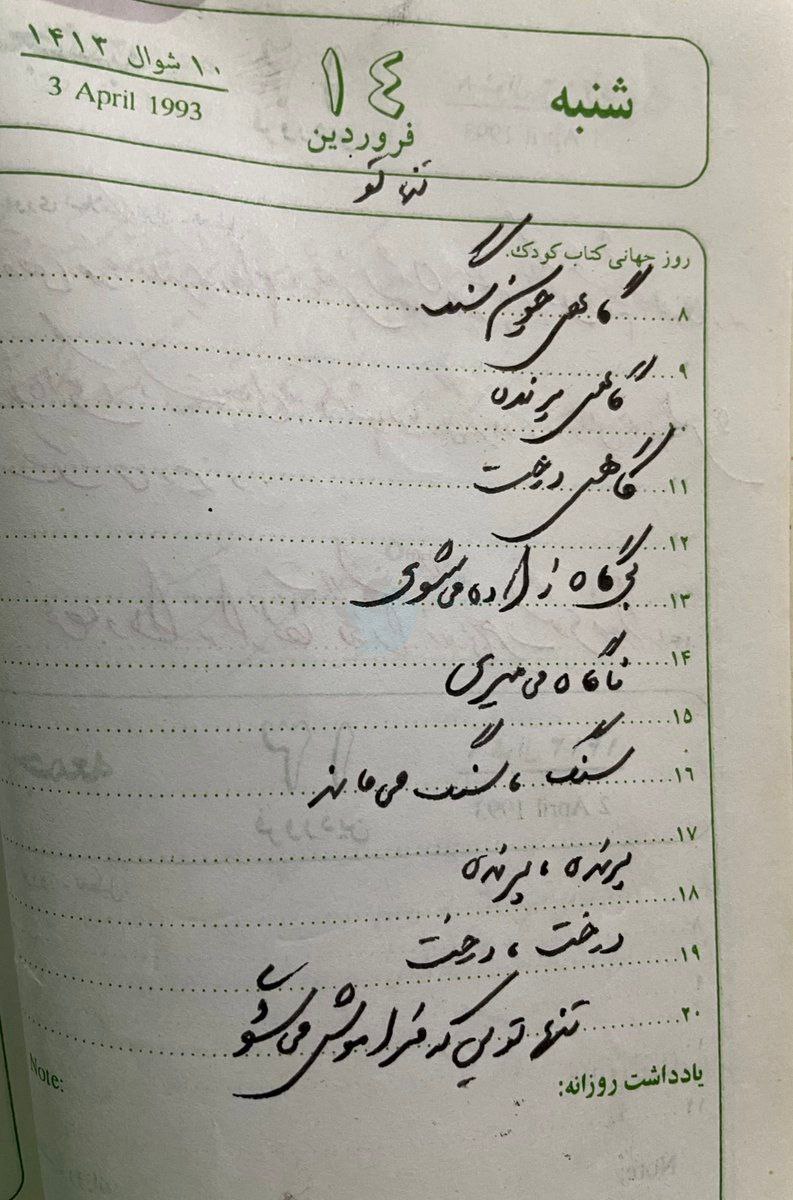 شنبه
۱۴
فروردین
۱۰ شوال ۱۴۱۳
3 April 1993
تنها تو
روز جهانی کتاب کودک.
۸ گاهی چون سنگ
۹
گاهی پرنده
۱۰
۱۱ گاهی درخت
۱۲
۱۳ بی‌گاه زاده می‌شوی
۱۴ ناگاه می‌میری
۱۵
۱۶ سنگ ، سنگ می‌ماند
۱۷
پرنده ، پرنده
۱۸
۱۹ درخت ، درخت
۲۰
تنها تویی که فراموش می‌شوی
یادداشت روزانه:
Note: